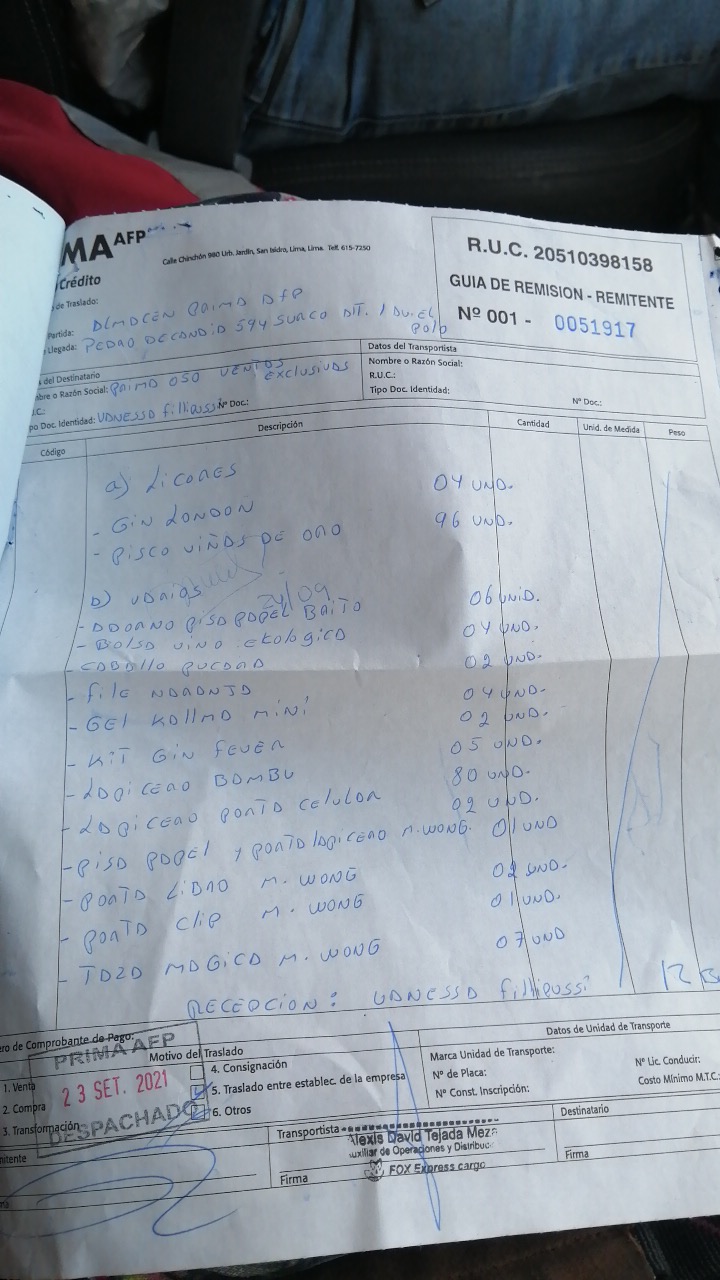 MA AFP
Crédito
Calle Chinchón 980 Urb. Jardín, San Isidro, Lima, Lima. Telf. 615-7250
R.U.C. 20510398158
GUIA DE REMISION - REMITENTE
Nº 001 - 0051917
de Traslado:
Partida: ALMACEN PRIMA AFP
Llegada: PEDRO DE CANDIA 594 SURCO ALT. 1 AV. EL POLO
Datos del Transportista
Nombre o Razón Social:
R.U.C.:
Tipo Doc. Identidad:
Nº Doc.:
del Destinatario
bre o Razón Social: PRIMA 050 VENTAS EXCLUSIVAS
.C.:
po Doc. Identidad: VANESSA fillipussi Nº Doc.:
Código Descripción Cantidad Unid. de Medida Peso
a) LICORES
- GIN LONDON 04 UND.
- PISCO VIÑAS DE ORO 96 UND.
b) VARIOS
24/09
- ADORNO PISA PAPEL BAITO 06 UNID.
- BOLSA VINO EKOLOGICA 04 UND.
- CABALLO RUEDAD 02 UND.
- FILE NARANJA 04 UND.
- GEL KALLMA MINI 02 UND.
- KIT GIN FEVER 05 UND.
- LAPICERO BAMBU 80 UND.
- LAPICERO PORTA CELULAR 02 UND.
- PISA PAPEL Y PORTA LAPICERO M. WONG. 01 UND
- PORTA LIBRO M. WONG 02 UND.
- PORTA CLIP M. WONG 01 UND.
- TAZA MAGICA M. WONG 07 UND
RECEPCION: VANESSA fillipussi
ero de Comprobante de Pago:
PRIMA AFP
23 SET. 2021
DESPACHADO
Motivo del Traslado
1. Venta
2. Compra
3. Transformación
4. Consignación
5. Traslado entre establec. de la empresa
6. Otros
Datos de Unidad de Transporte
Marca Unidad de Transporte:
Nº de Placa:
Nº Const. Inscripción:
Nº Lic. Conducir:
Costo Mínimo M.T.C.:
mitente
Transportista
Alexis David Tejada Meza
uxiliar de Operaciones y Distribuc
FOX Express cargo
Firma
Destinatario
Firma